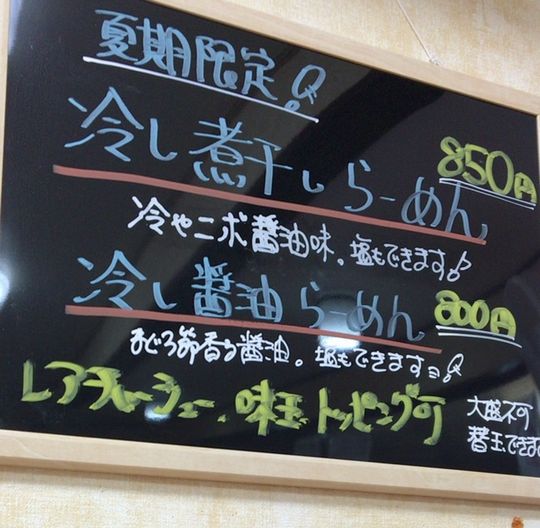 夏期限定!
冷し煮干しらーめん 850円
冷やニボ醤油味。塩もできます♪
冷し醤油らーめん 800円
まぐろ節香る醤油。塩もできますョ!
レアチャーシュー、味玉トッピング可
大盛不可
替玉できます